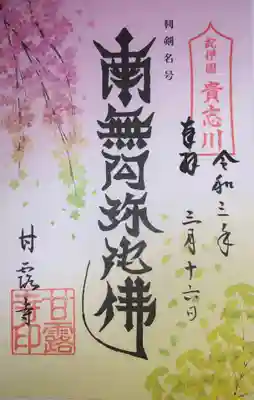 紀伊國
貴志川
奉拝
令和三年
三月十六日
利剣名号
南無阿弥陀佛
甘露寺
甘露
寺印